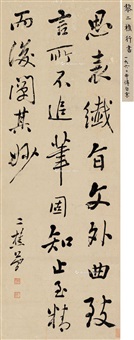 黎二樵行書
思表纖旨文外曲致
言所不追筆固知止至精
而後闡其妙
二樵簡